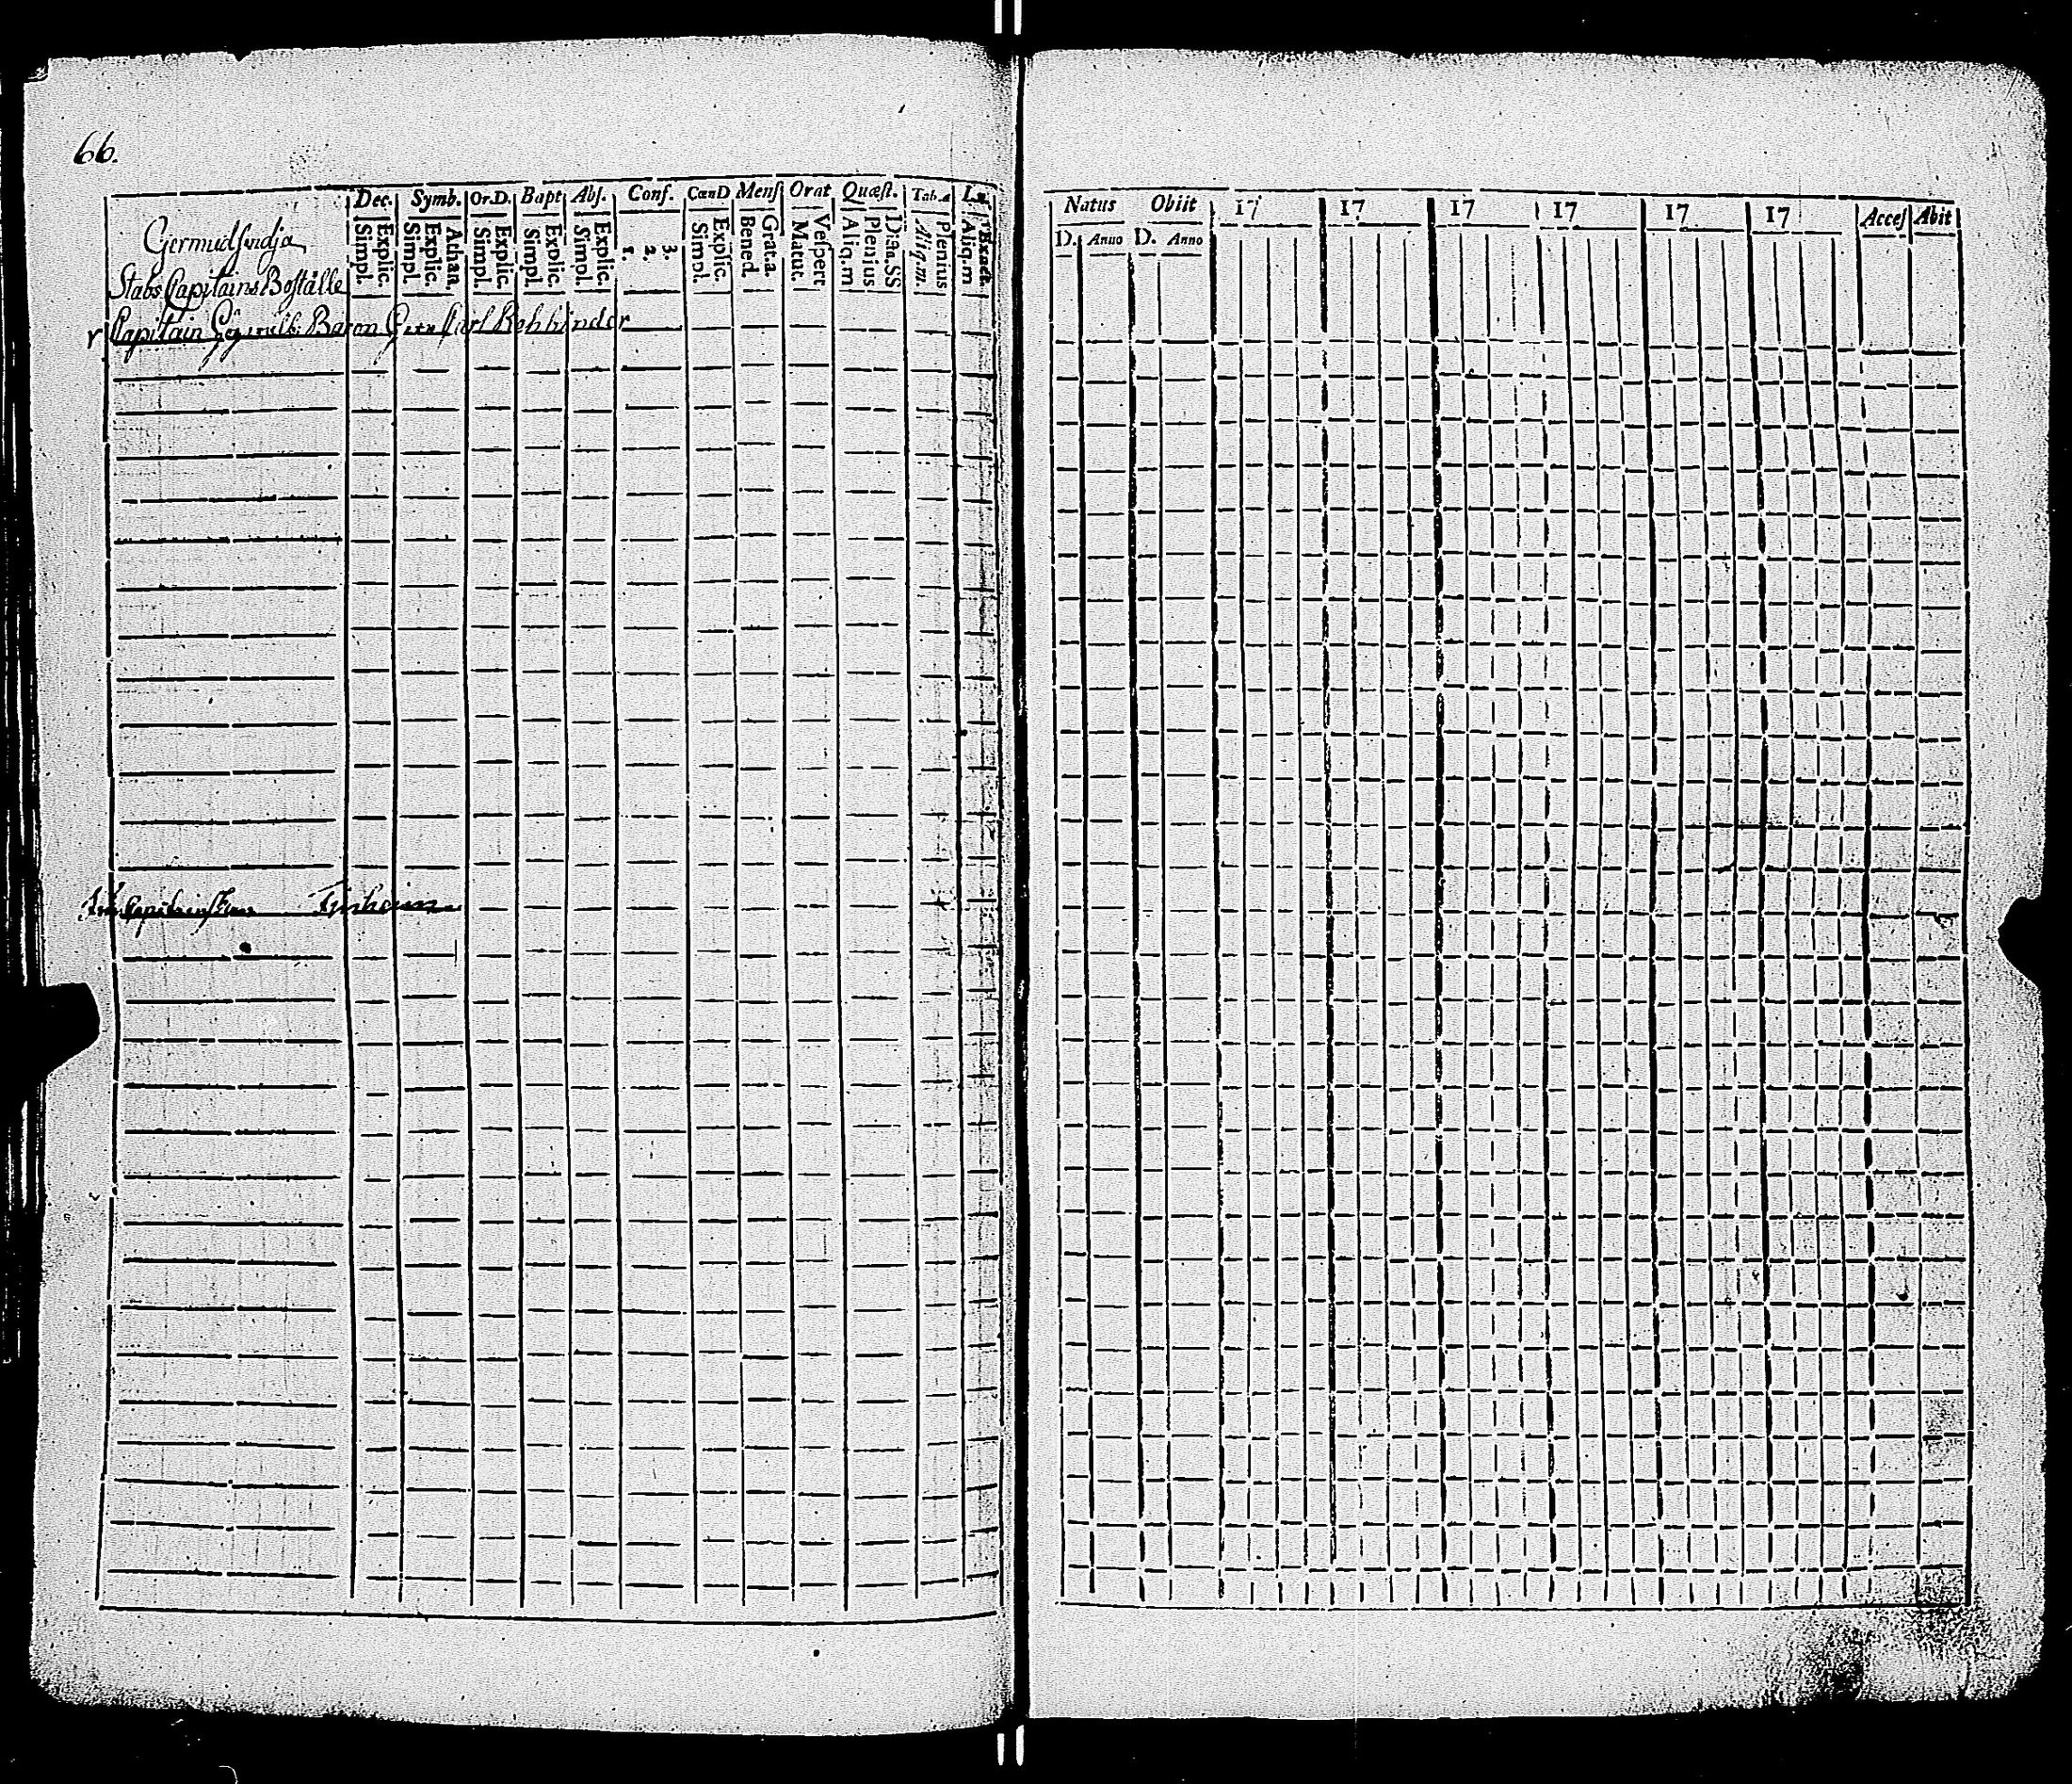 66.
Dec. Symb. Or.D. Bapt Abs. Conf. CœnD Mens Orat Quæst. Tab.
Simpl. Explic. Simpl. Explic. Athan. Simpl. Explic. Simpl. Explic. Simpl. Explic. 1. 2. 3. Simpl. Explic. Bened. Grat.a. Matut. Vespert Aliq.m Plenius Dicta.SS Aliq.m. Plenius Aliq.m Exact.
Stabs Capitains Boställe
Capitain Baron Carl Rehbinder
Natus Obiit 17 17 17 17 17 17 Acces Abit
D. Anno D. Anno